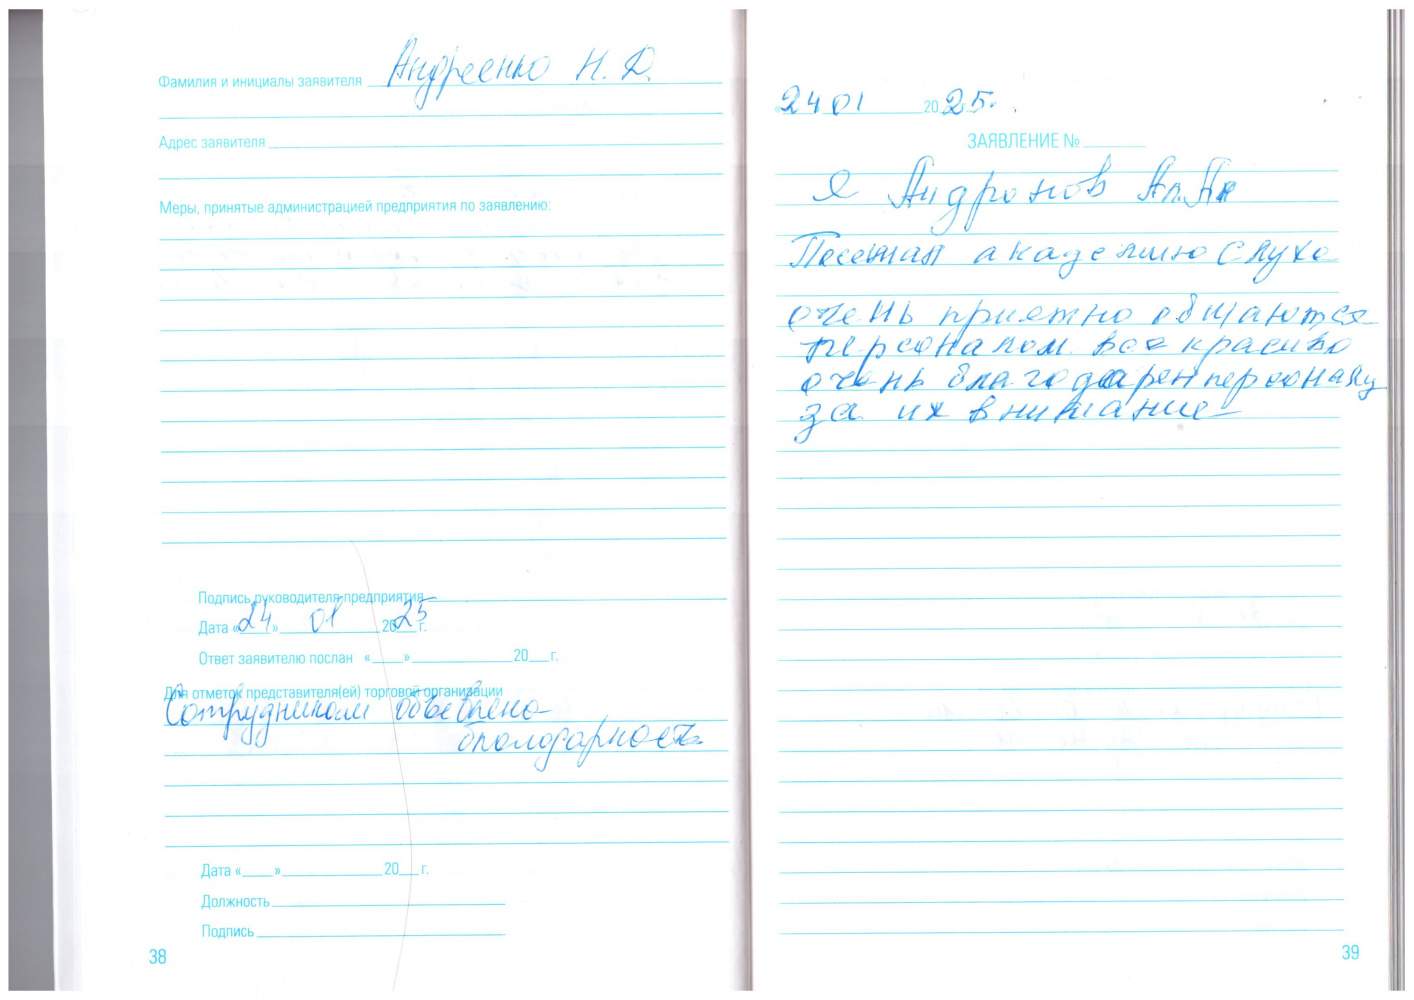 Фамилия и инициалы заявителя Андреенко Н. Д.
Адрес заявителя
Меры, принятые администрацией предприятия по заявлению:
Подпись руководителя предприятия
Дата «24» 01 2025 г.
Ответ заявителю послан « » 20 г.
Для отметок представителя(ей) торговой организации
Сотрудникам объявлено
благодарность
Дата « » 20 г.
Должность
Подпись
38
24 01 2025.
ЗАЯВЛЕНИЕ №
Я Андронов Ал.
Посетил академию слуха
очень приятно общаются
персоналом все красиво
очень благодарен персоналу
за их внимание
39